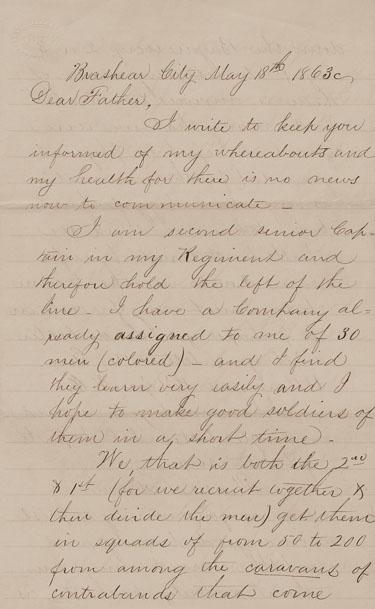 Brashear City May 18th 1863
Dear Father,
I write to keep you
informed of my whereabouts and
my health for there is no news
now to communicate —
I am second senior Cap-
tain in my Regiment and
therefore hold the left of the
line - I have a Company al=
ready assigned to me of 30
men (colored) — and I find
they learn very easily and I
hope to make good soldiers of
them in a short time -
We, that is both the 2nd
& 1st (for we recruit together &
then divide the men) get them
in squads of from 50 to 200
from among the caravans of
contrabands that come